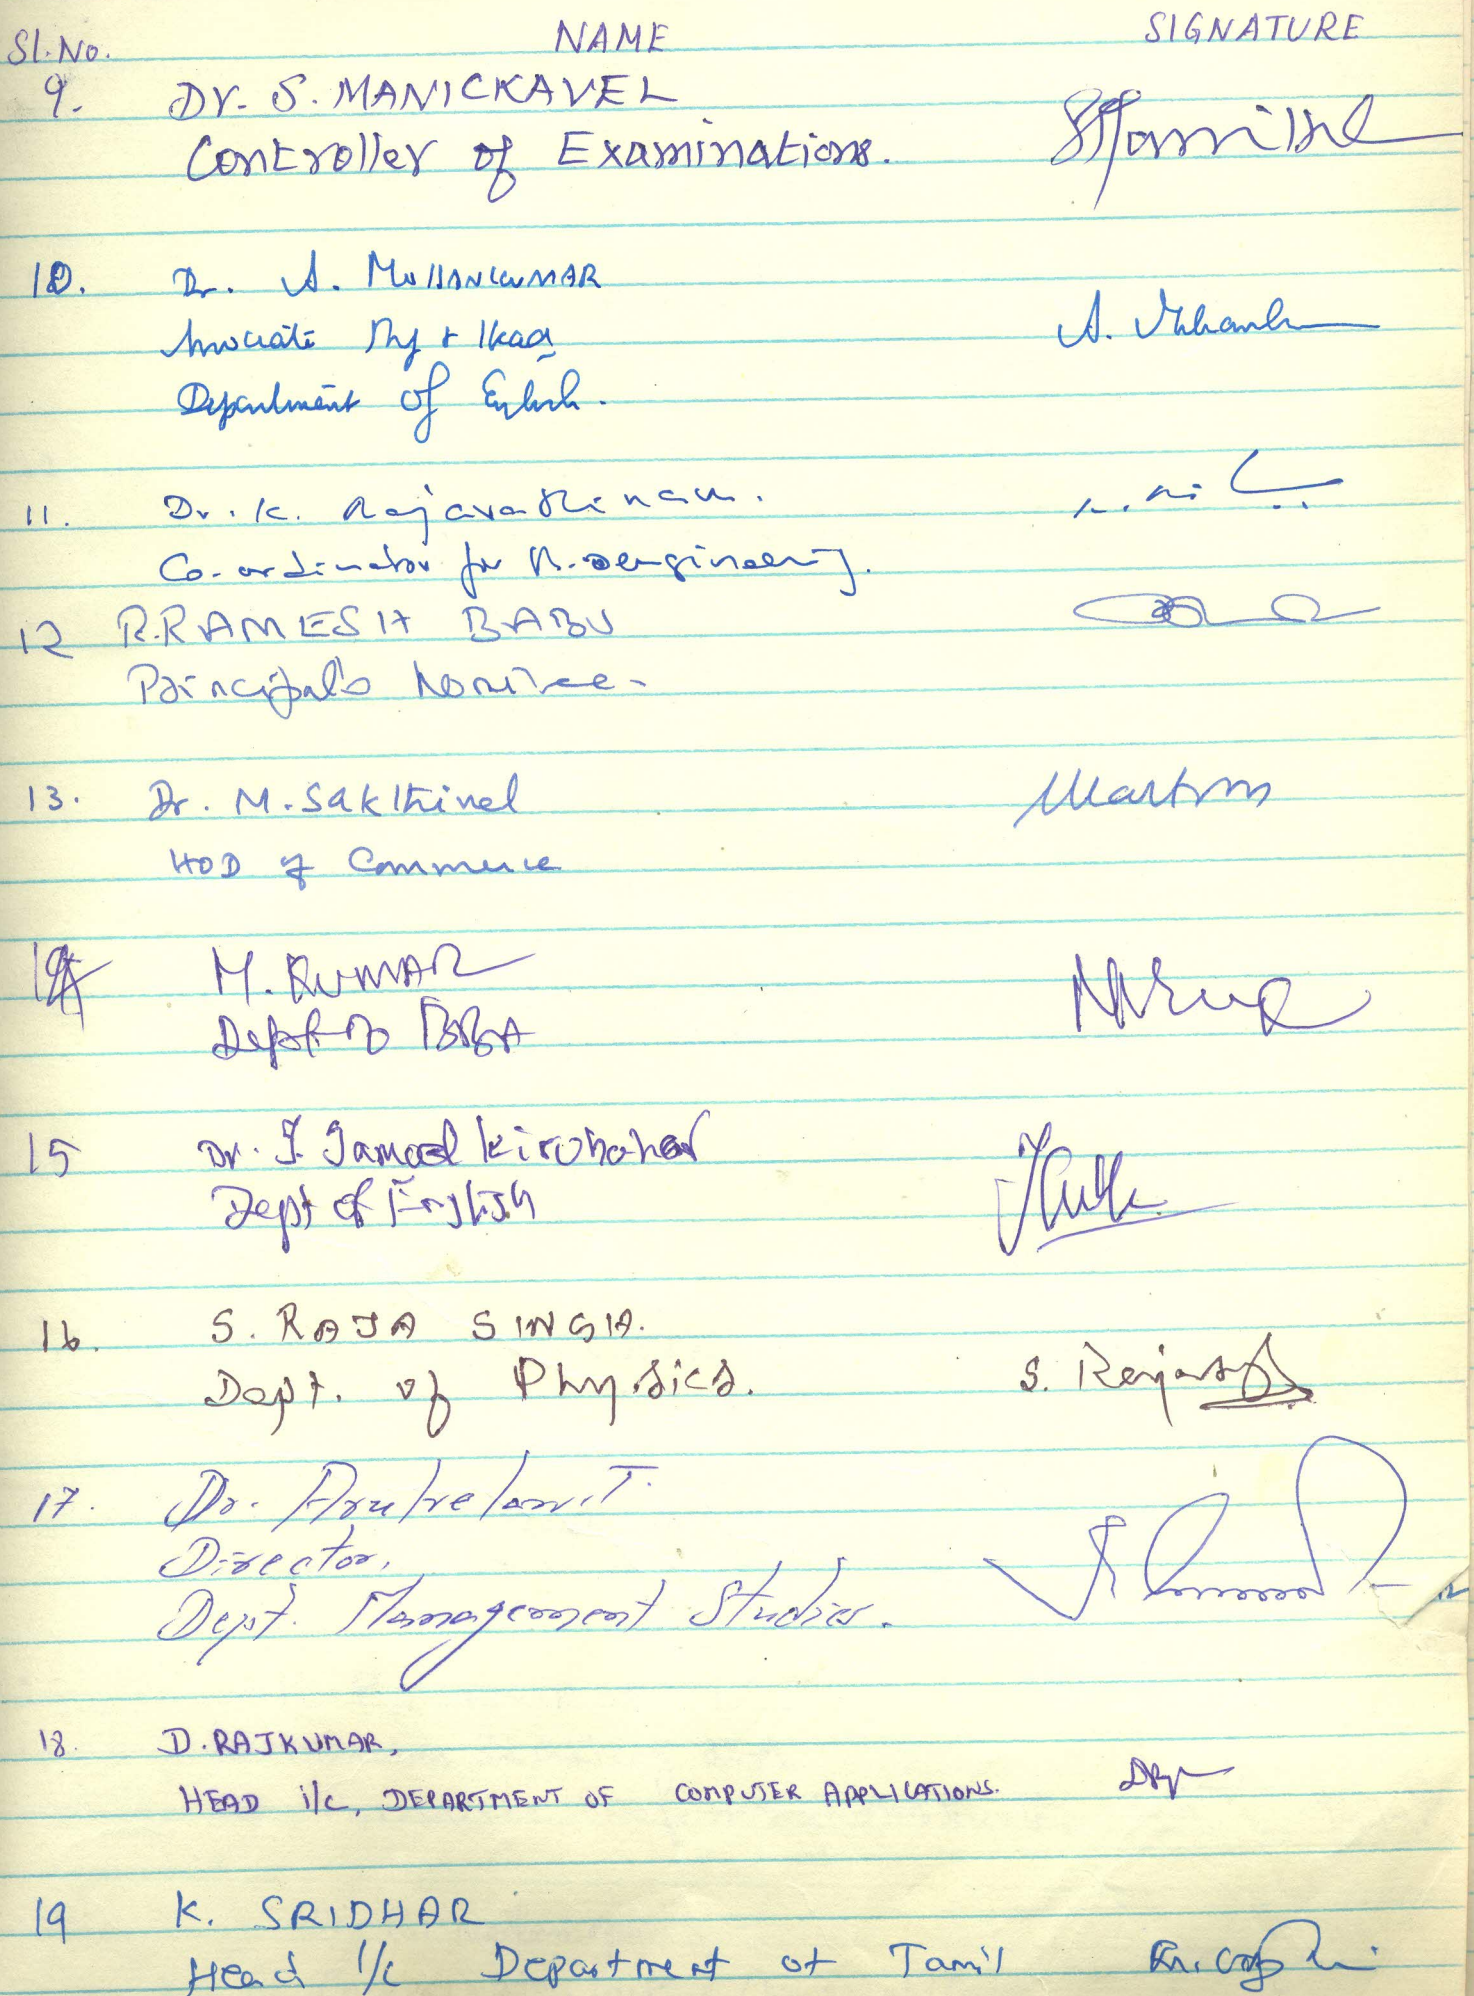 Sl.No. NAME SIGNATURE
9. Dr. S. MANICKAVEL
Controller of Examinations.
10. Dr. A. MOHANKUMAR
Associate Prof & Head
Department of English.
A. Mohank
11. Dr. K. Rajarathinam.
Co-ordinator for Bioengineering.
12 R.RAMESH BABU
Principal's Nominee-
13. Dr. M. Sakthivel
HOD of Commerce
14 M. KUMAR
Dept of BBA
15 Dr. J. Jamael Kirubaharan
Dept of English
16. S. RAJA SINGH.
Dept. of Physics.
S. Rajas
17. Dr. Arutselvan.T.
Director,
Dept. Management Studies.
18. D. RAJKUMAR,
HEAD i/c, DEPARTMENT OF COMPUTER APPLICATIONS.
19 K. SRIDHAR
Head I/c Department of Tamil